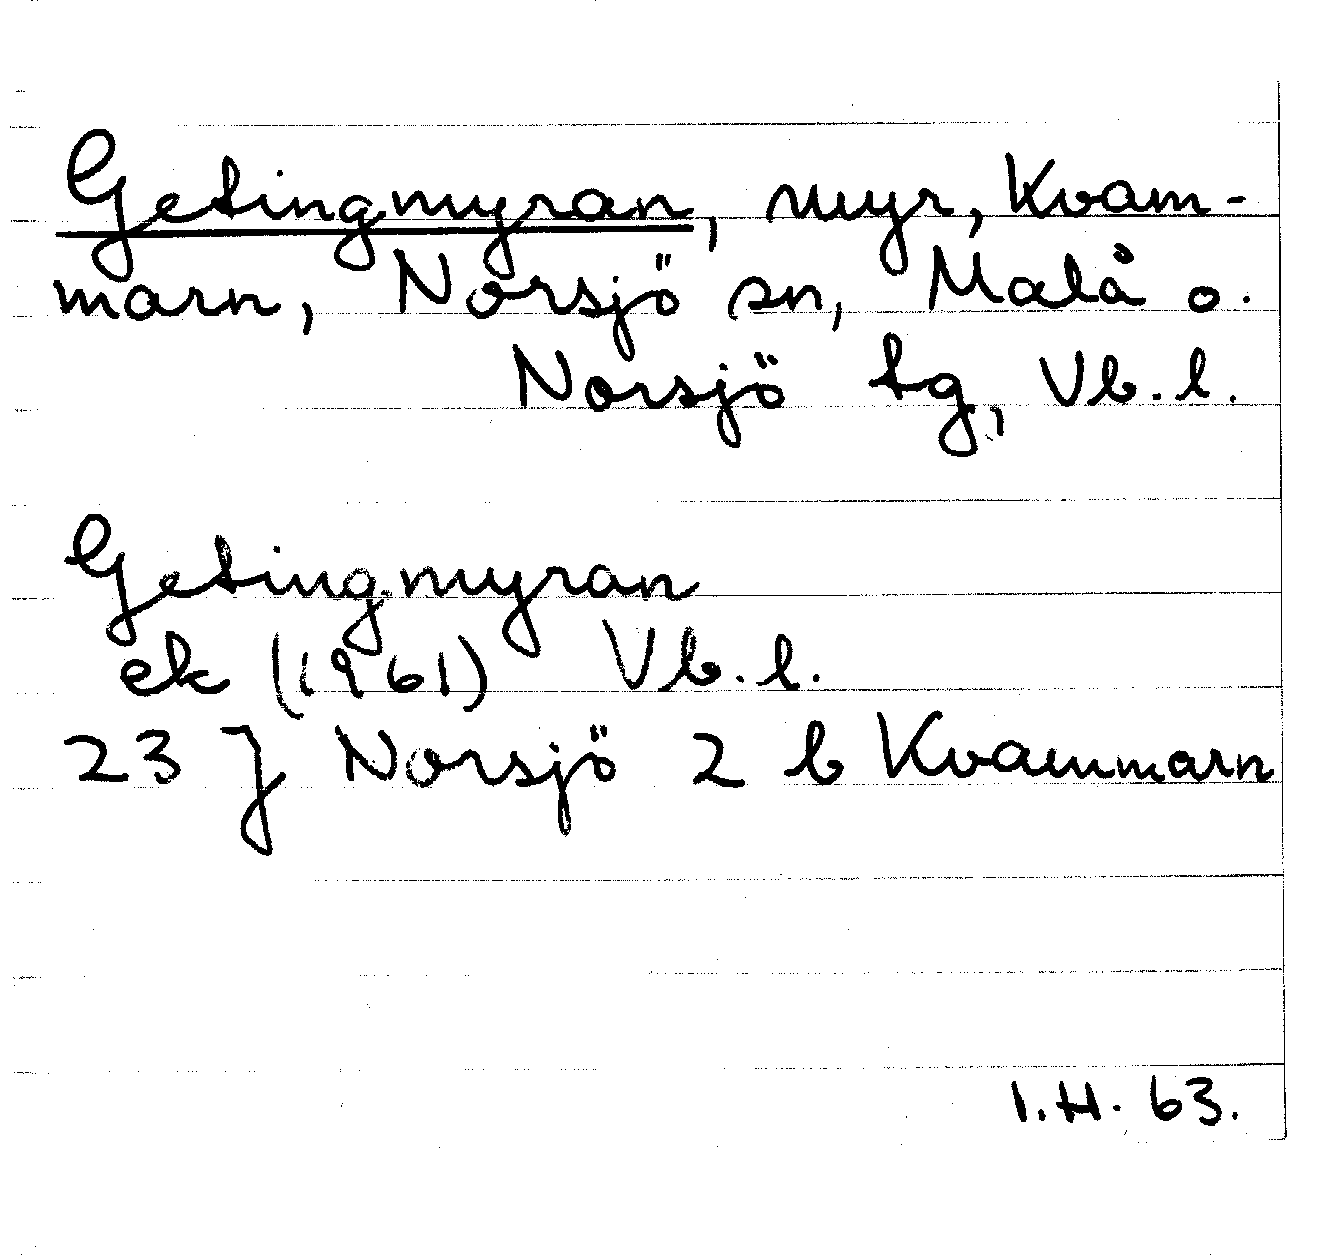 Getingmyran, myr, Kvam-
marn, Norsjö sn, Malå o.
Norsjö tg, Vb. l.
Getingmyran
ek (1961) Vb. l.
23 J Norsjö 2 b Kvammarn
I.H. 63.